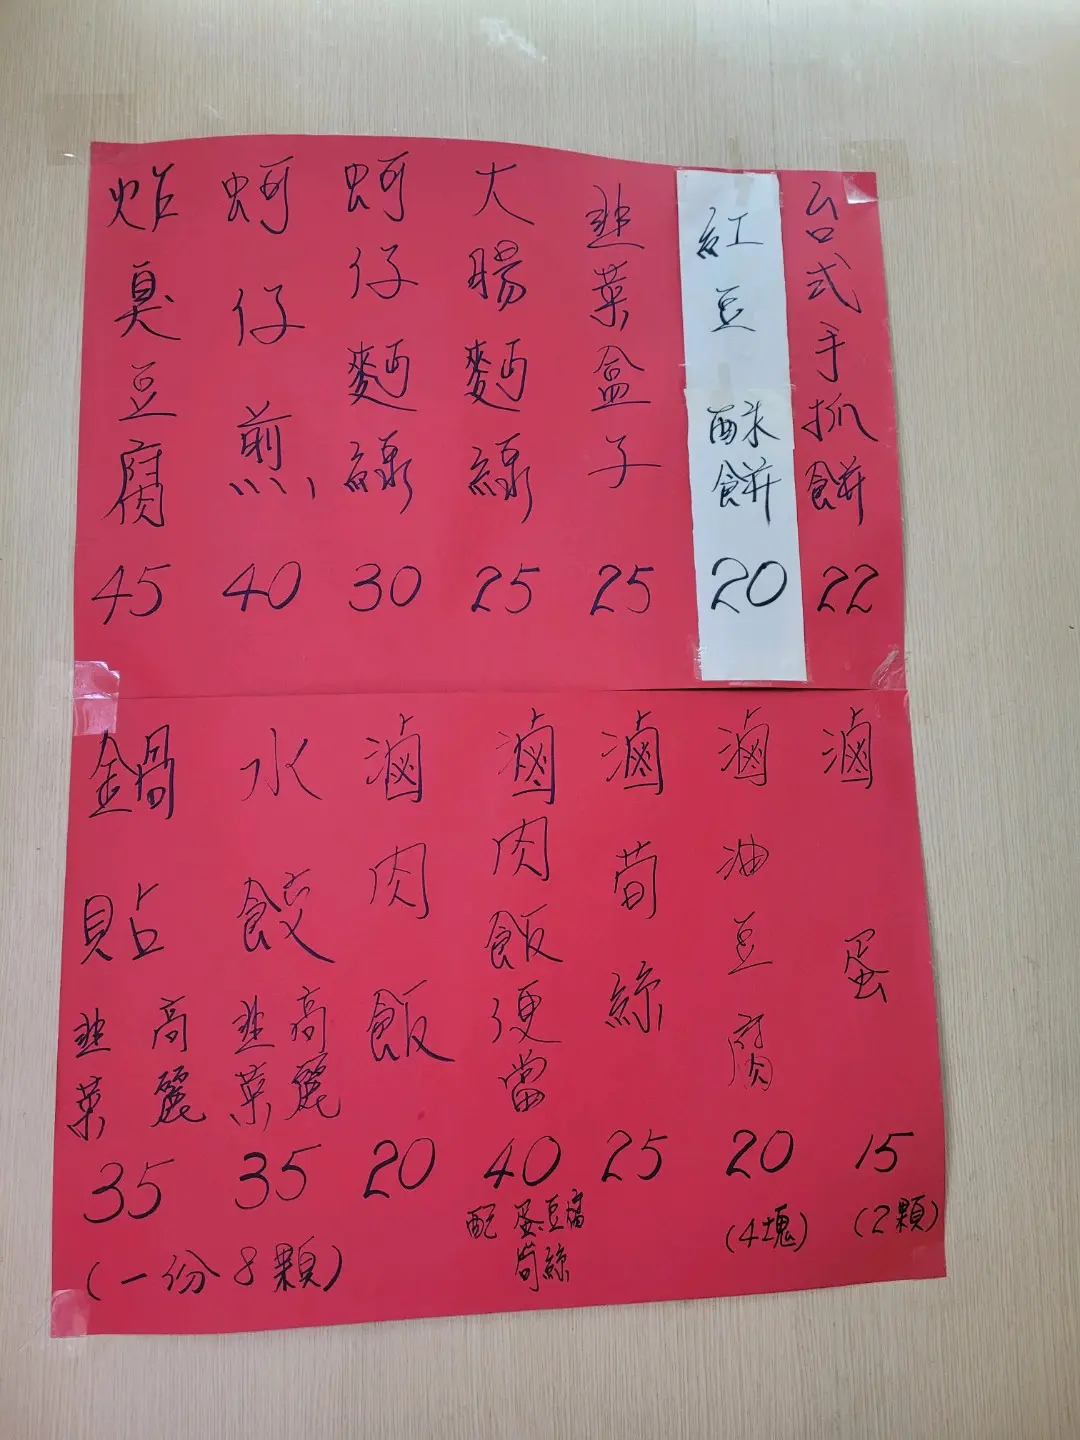 台式手抓餅 22
紅豆酥餅 20
韭菜盒子 25
大腸麵線 25
蚵仔麵線 30
蚵仔煎 40
炸臭豆腐 45
滷蛋 15 (2顆)
滷油豆腐 20 (4塊)
滷筍絲 25
滷肉飯便當 40
配 蛋.豆腐
筍絲
滷肉飯 20
水餃 高麗 韭菜 35
鍋貼 高麗 韭菜 35
(一份8顆)